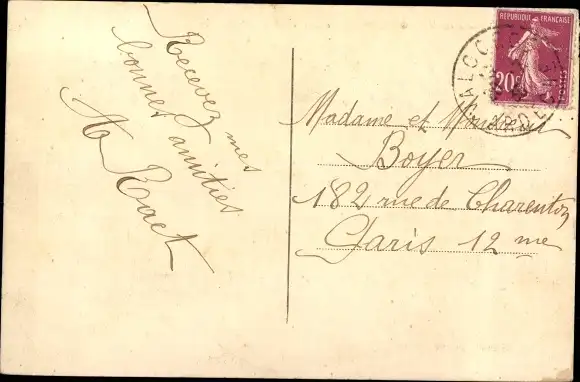 Recevez mes
bonnes amitiés
Ract
REPUBLIQUE FRANÇAISE
20c
POSTES
Madame et Monsieur
Boyer
182 rue de Charenton
Paris 12 me